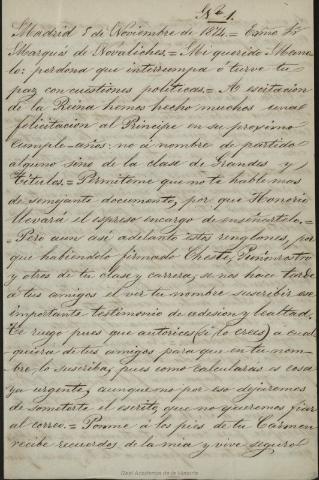 Nº 1.
Madrid 5 de Noviembre de 1874.= Excmo Sr
Marqués de Novaliches.= Mi querido Mano-
lo: perdona que interrumpa ó turve tu
paz con cuestiones politicas.= A escitacion
de la Reina hemos hecho muchos una
felicitacion al Principe en su proximo
cumple-años: no á nombre de partido
alguno sino de la clase de Grandes y
Titulos.= Permiteme que no te hable mas
de semejante documento, por que Honorio
llevará el espreso encargo de enseñartelo.=
= Pero aun así adelanto estos renglones, por
que habiendolo firmado Cheste,
y otros de tu clase y carrera, se nos hace tarde
á tus amigos el ver tu nombre suscribir ese
importante testimonio de adesion y lealtad.
Te ruego pues que autorices (si lo crees) á cual
quiera de tus amigos para que en tu nom-
bre, lo suscriba, pues como calcularas es cosa
ya urgente, aunque no por eso dejaremos
de someterte el escrito, que no queremos fiar
al correo.= Ponme á los pies de tu Carmen
recibe recuerdos de la mia y vive seguro
Real Academia de la Historia